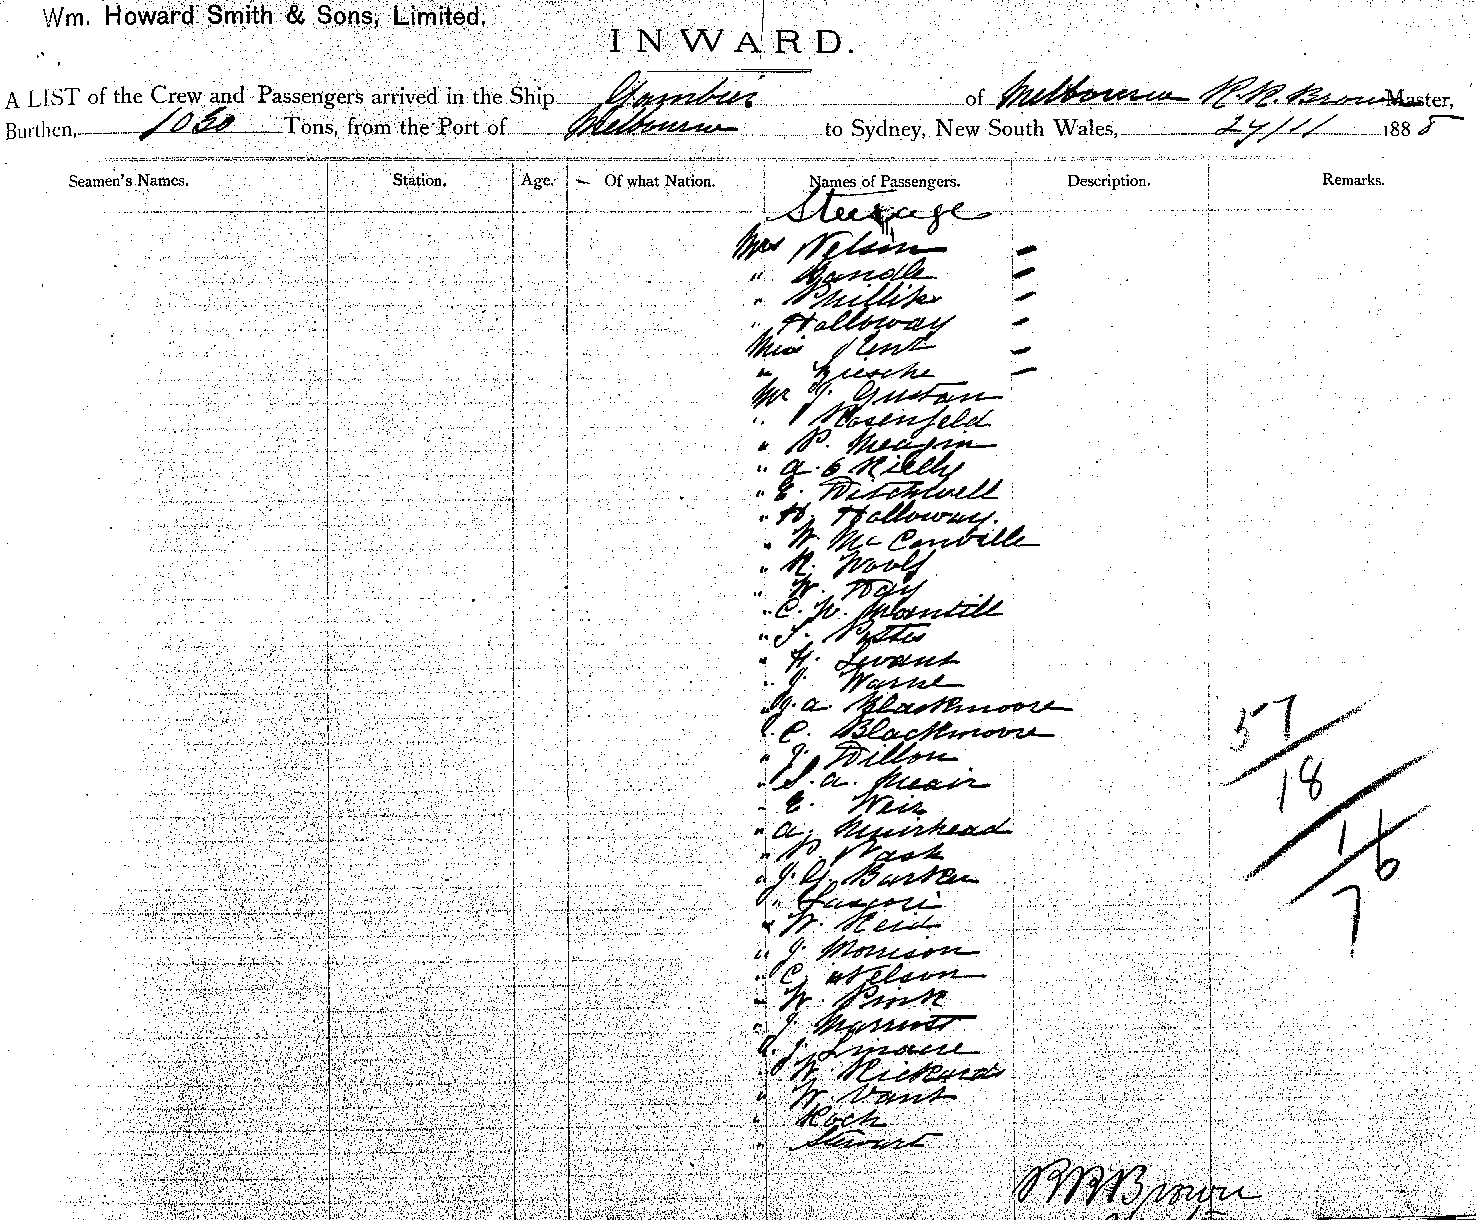 Wm. Howard Smith & Sons, Limited.
INWARD.
A LIST of the Crew and Passengers arrived in the Ship Gambier of Melbourne R. R. Brown Master,
Burthen, 1050 Tons, from the Port of Melbourne to Sydney, New South Wales, 24/11 1888
Seamen's Names. Station. Age. Of what Nation. Names of Passengers. Description. Remarks.
Steerage
Mrs Nelson –
" –
" Phillips –
" Holloway –
Miss Kent –
" –
Mr J. Gustan
" Rosenfeld
" P.
" A.
" E. Ditchwell
" H. Holloway.
" W. McConville
" R. Woolf
" W. Day
" C. W.
" Potts
" H.
" J. Warne
" J. A Blackmoore
" C. Blackmoore
" J. Dillon
" S. A.
" E. Weir
" A. Muirhead
" P. Wash
" J. G. Barker
"
" W. Reid
" J. Morrison
" C. Nelson
" W. Pink
" J.
" J.
" W. Rickards
" W. Vant
" Koch
" Stewart
57
18
16
7
R R Brown